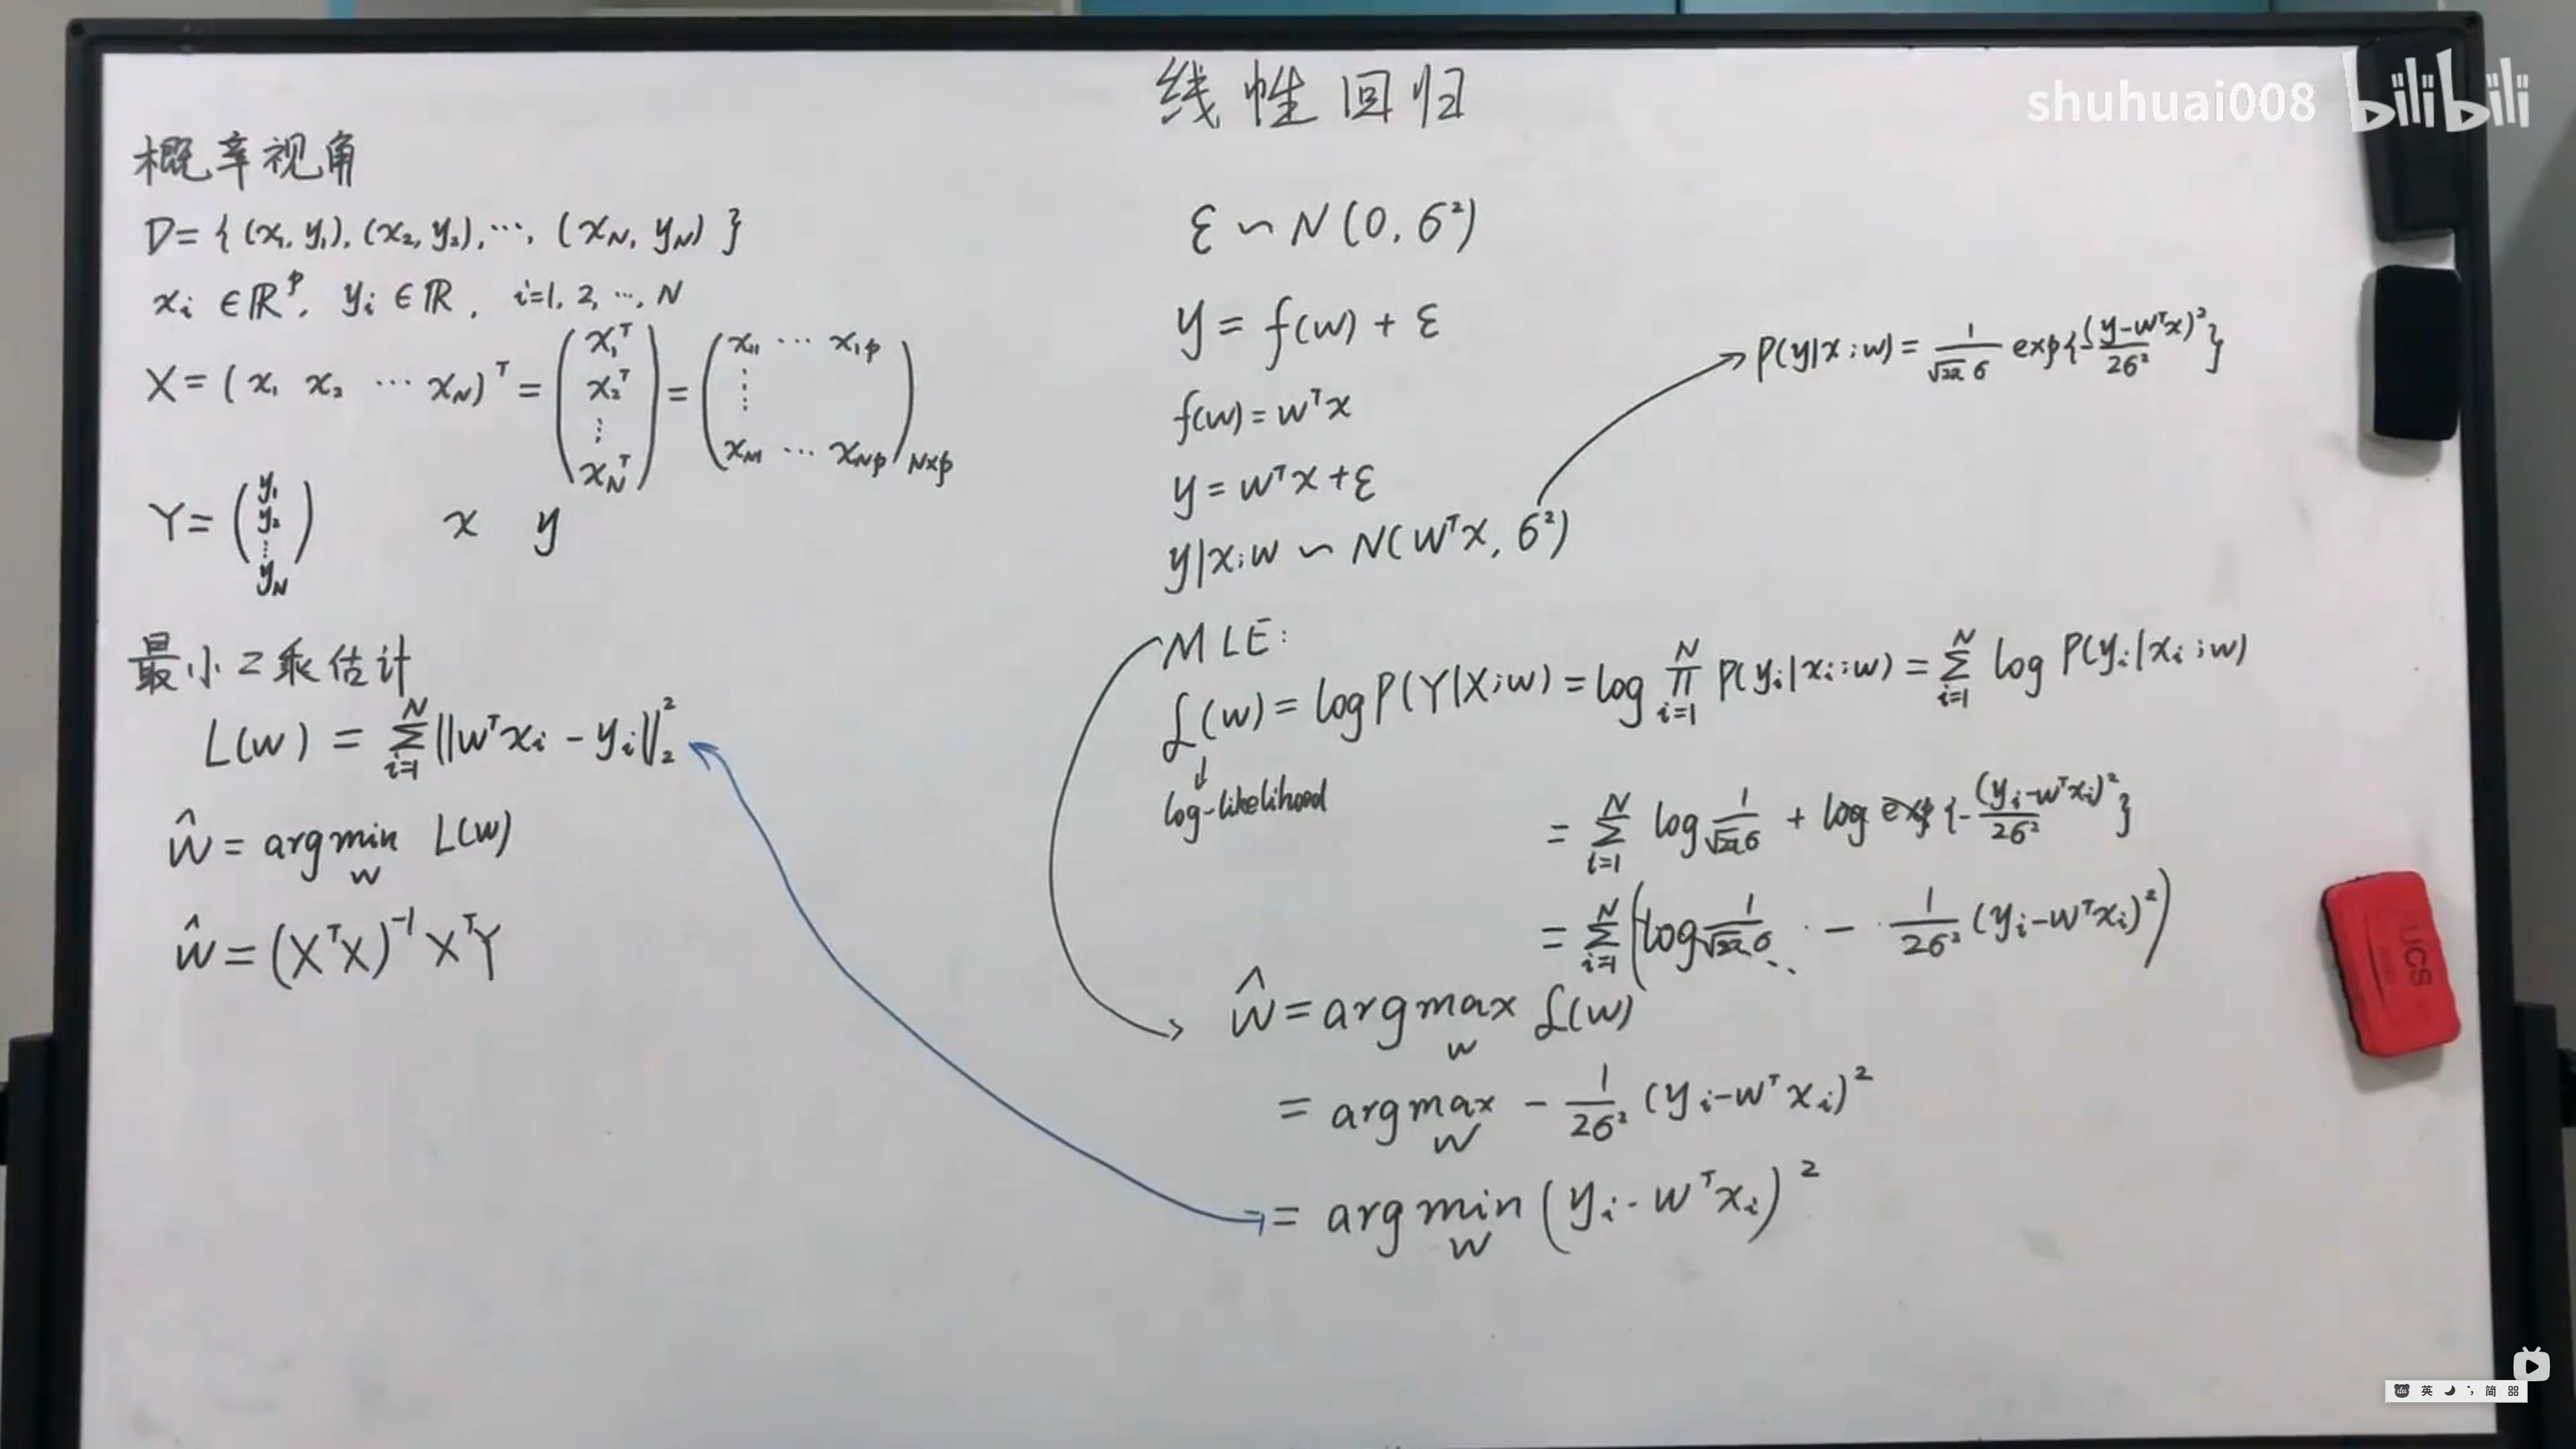 线性回归
shuhuai008 bilibili
概率视角
D = {(x₁, y₁), (x₂, y₂), ⋯, (x_N, y_N)}
xᵢ ∈ ℝᵖ, yᵢ ∈ ℝ, i=1, 2, ⋯, N
X = (x₁ x₂ ⋯ x_N)ᵀ = (x₁ᵀ x₂ᵀ ⋮ x_Nᵀ) = (x₁₁ ⋯ x₁ₚ ⋮ x_N₁ ⋯ x_Nₚ)_N×p
Y = (y₁ y₂ ⋮ y_N) x y
最小2乘估计
L(w) = Σ_{i=1}^{N} ||wᵀxᵢ - yᵢ||₂²
ŵ = argmin_w L(w)
ŵ = (XᵀX)⁻¹XᵀY
ε ∽ N(0, σ²)
y = f(w) + ε
f(w) = wᵀx
y = wᵀx + ε
y|x;w ∽ N(wᵀx, σ²)
P(y|x;w) = 1/(√2π σ) exp{-(y-wᵀx)²/2σ²}
MLE:
ℒ(w) = log P(Y|X;w) = log ∏_{i=1}^{N} P(yᵢ|xᵢ;w) = Σ_{i=1}^{N} log P(yᵢ|xᵢ;w)
log-likelihood
= Σ_{i=1}^{N} log 1/(√2π σ) + log exp{-(yᵢ-wᵀxᵢ)²/2σ²}
= Σ_{i=1}^{N} (log 1/(√2π σ) - 1/2σ² (yᵢ-wᵀxᵢ)²)
ŵ = argmax_w ℒ(w)
= argmax_w - 1/2σ² (yᵢ-wᵀxᵢ)²
= argmin_w (yᵢ-wᵀxᵢ)²
UCS
英 简